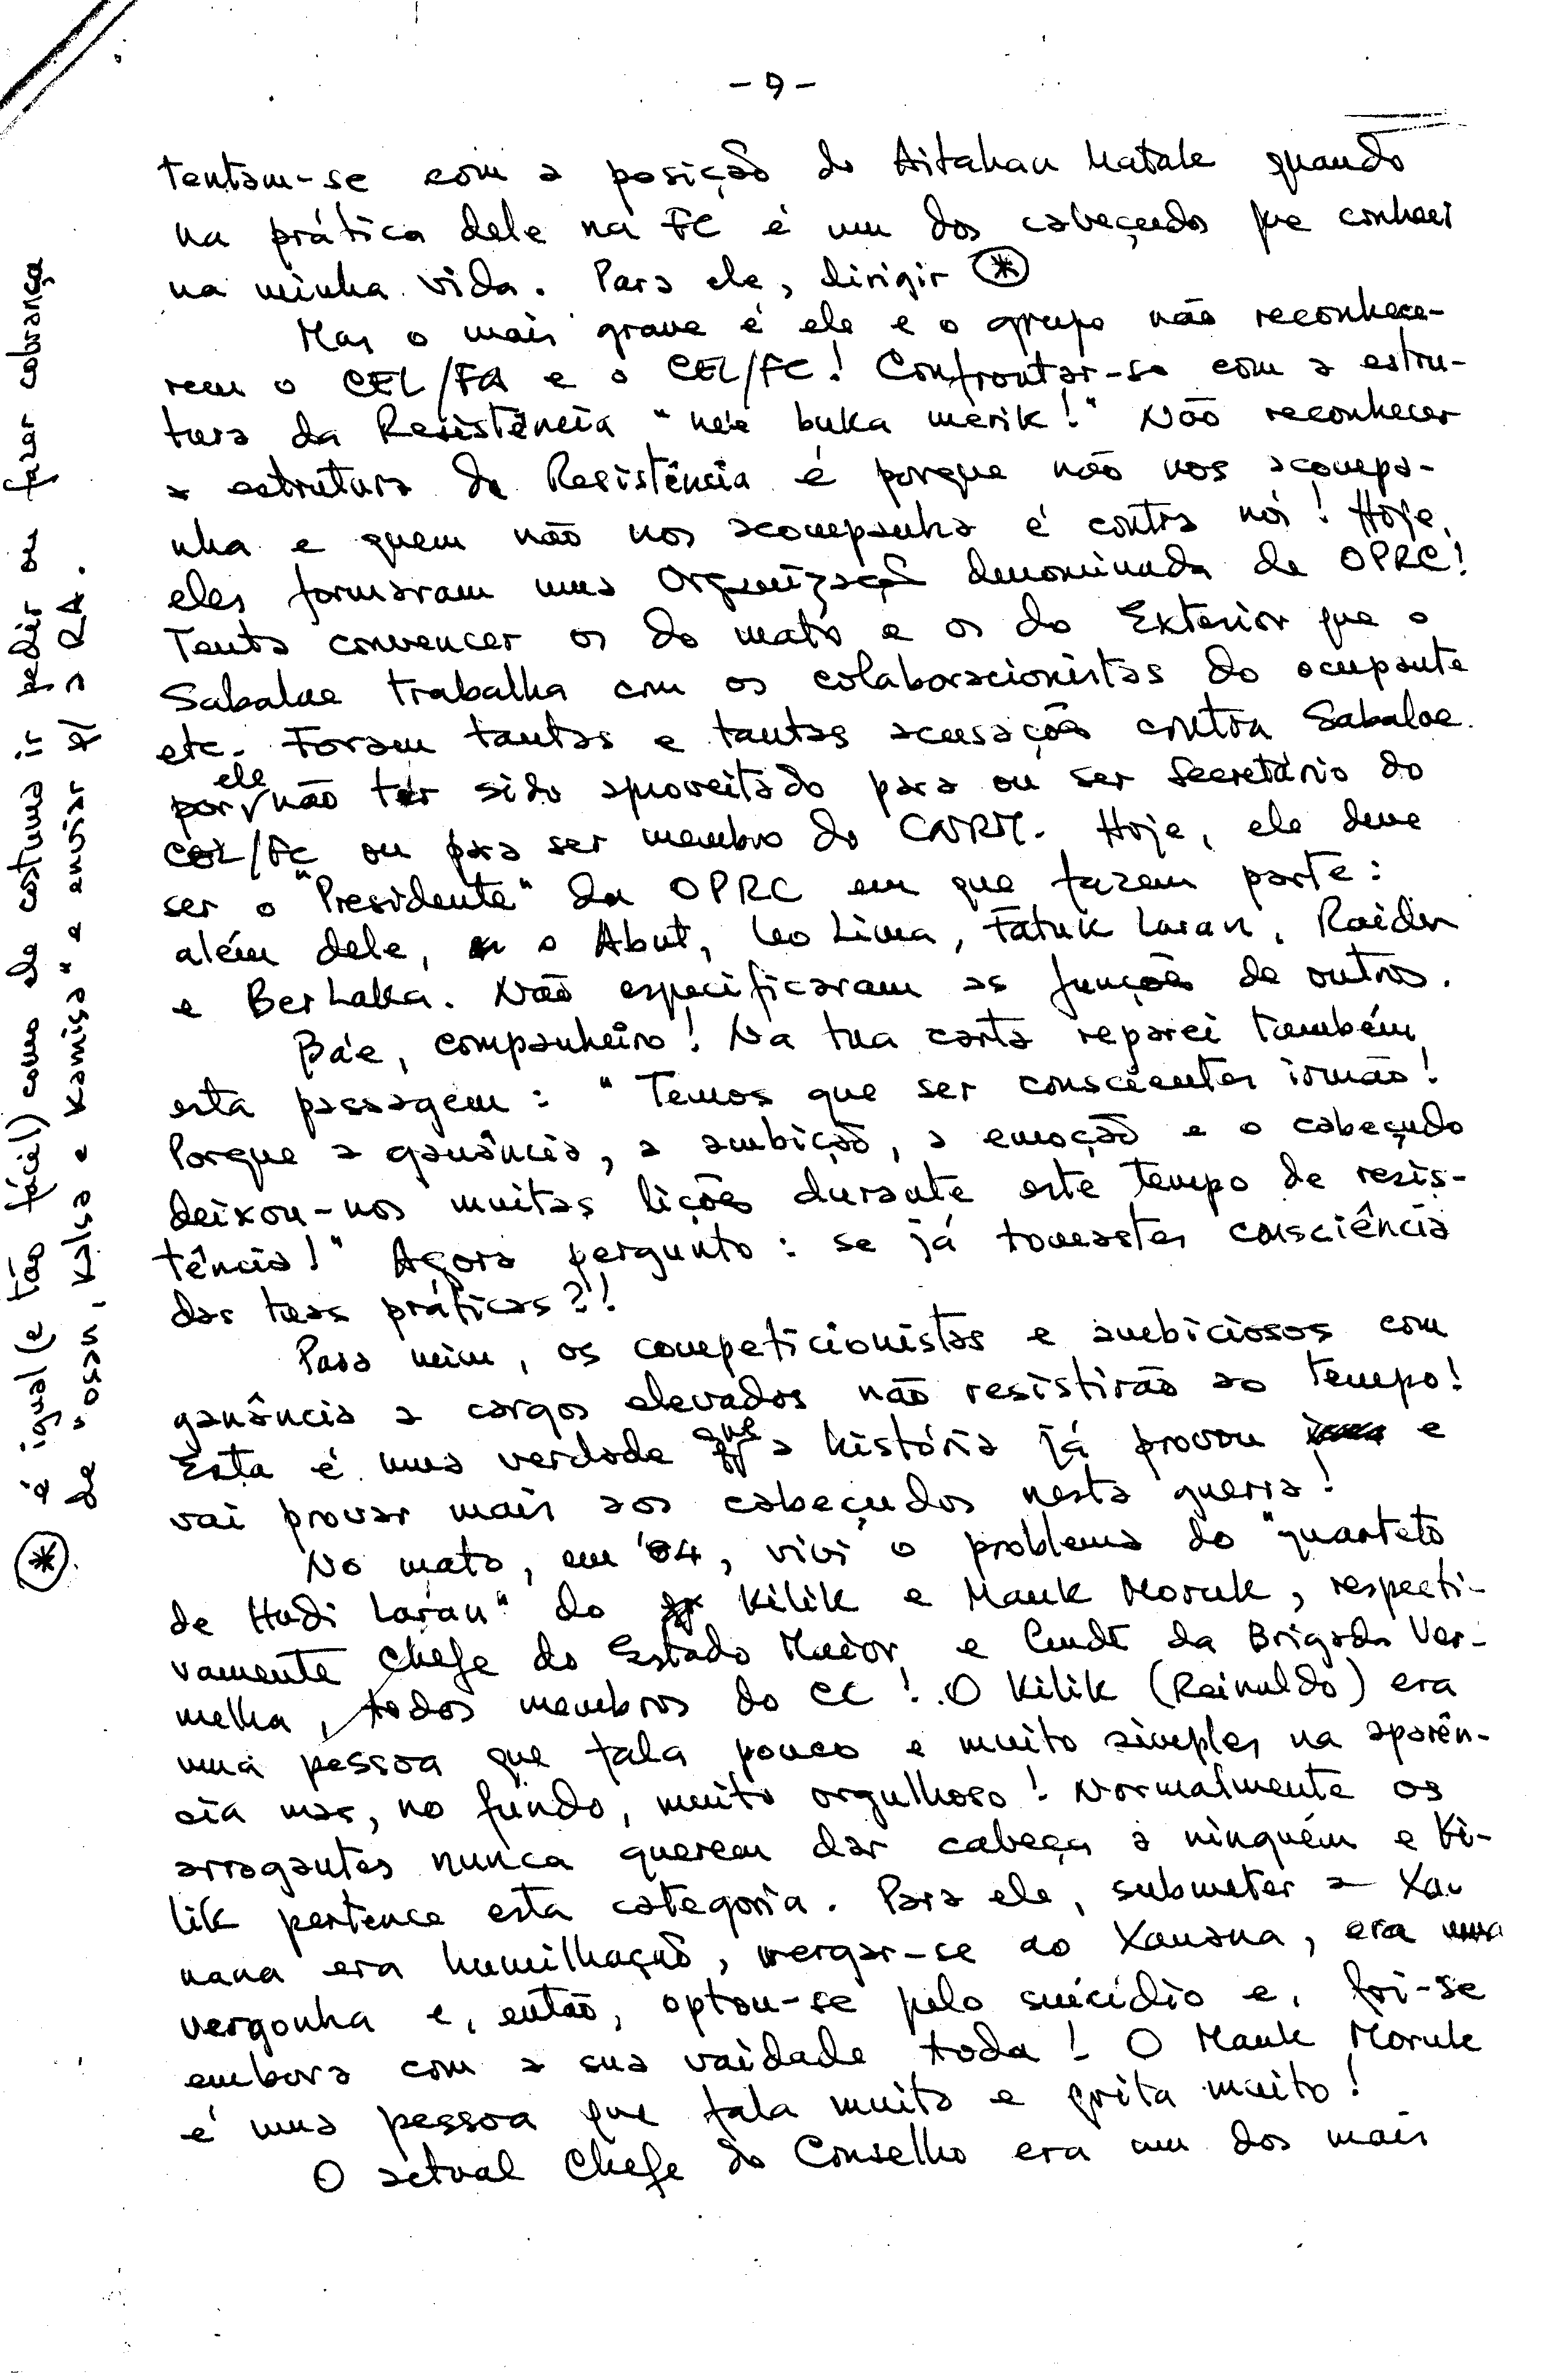 - 9 -
tentam-se com a posição do Aitahan Matak quando
na prática dele na FC é um dos cabeçudos que conheci
na minha vida. Para ele, dirigir *
Mas o mais grave é ele e o grupo não reconhece-
rem o CEL/FA e o CEL/FC! Confrontar-se com a estru-
tura da Resistência "né'e buka merik!" Não reconhecer
a estrutura da Resistência é porque não nos acompa-
nha e quem não nos acompanha é contra nós! Hoje,
eles formaram uma Organização denominada de OPRC!
Tenta convencer os do mato e os do Exterior que o
Sabalae trabalha com os colaboracionistas do ocupante
etc. Foram tantas e tantas acusações contra Sabalae
por ele não ter sido aproveitado para ou ser Secretário do
CEL/FC ou para ser membro do CNRM. Hoje, ele deve
ser o "Presidente" da OPRC em que fazem parte:
além dele, o Abut, Leo Lima, Fatuk Laran, Raider
e Ber Laka. Não especificaram as funções de outros.
Bá'e, companheiro! Na tua carta reparei também
esta passagem: "Temos que ser conscientes irmão!
Porque a ganância, a ambição, a emoção e o cabeçudo
deixou-nos muitas lições durante este tempo de resis-
tência!" Agora pergunto: se já tomastes consciência
das tuas práticas?!
Para mim, os competicionistas e ambiciosos com
ganância a cargos elevados não resistirão ao tempo!
Esta é uma verdade que a história já provou e
vai provar mais aos cabeçudos nesta guerra!
No mato, em '84, vivi o problema do "quarteto
de Hudi Laran" do Kilik e Mauk Moruk, respecti-
vamente Chefe do Estado Maior e Cmdt da Brigada Ver-
melha, todos membros do CC! O Kilik (Reinaldo) era
uma pessoa que fala pouco e muito simples na aparên-
cia mas, no fundo, muito orgulhoso! Normalmente os
arrogantes nunca querem dar cabeça a ninguém e Ki-
lik pertence esta categoria. Para ele, submeter a Xa-
nana era humilhação, vergar-se ao Xanana, era uma
vergonha e, então, optou-se pelo suicídio e, foi-se
embora com a sua vaidade toda! O Mauk Moruk
é uma pessoa que fala muito e grita muito!
O actual Chefe do Conselho era um dos mais
* é igual (e tão fácil) como ele costuma ir pedir ou fazer cobrança
de "osan, kalsa e kamisa" e enviar p/ a RA.